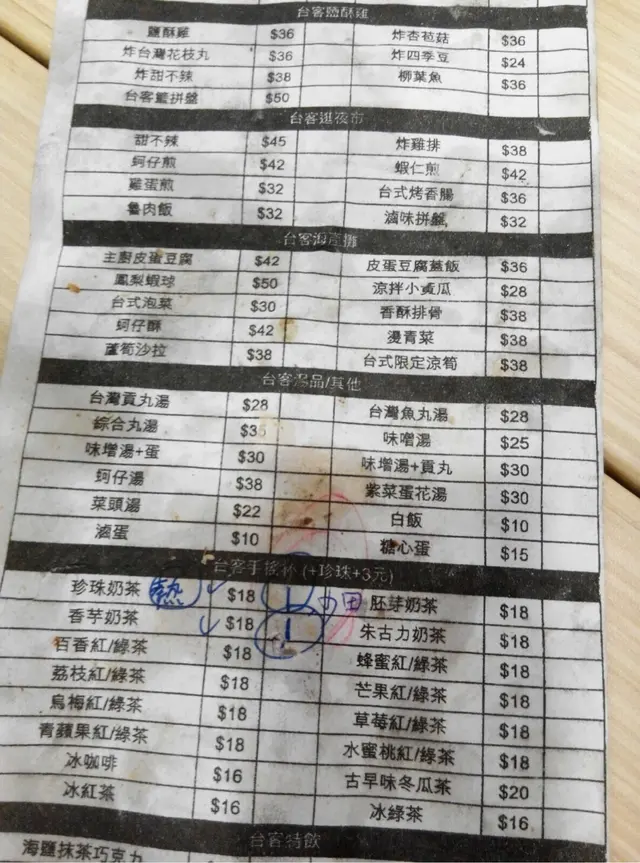 台客鹽酥雞
鹽酥雞 $36 炸杏苞菇 $36
炸台灣花枝丸 $36 炸四季豆 $24
炸甜不辣 $38 柳葉魚 $36
台客籃拼盤 $50
台客逛夜市
甜不辣 $45 炸雞排 $38
蚵仔煎 $42 蝦仁煎 $42
雞蛋煎 $32 台式烤香腸 $36
魯肉飯 $32 滷味拼盤 $32
台客海產攤
主廚皮蛋豆腐 $42 皮蛋豆腐蓋飯 $36
鳳梨蝦球 $50 涼拌小黃瓜 $28
台式泡菜 $30 香酥排骨 $38
蚵仔酥 $42 燙青菜 $38
蘆筍沙拉 $38 台式限定涼筍 $38
台客湯品/其他
台灣貢丸湯 $28 台灣魚丸湯 $28
綜合丸湯 味噌湯 $25
味增湯+蛋 $30 味增湯+貢丸 $30
蚵仔湯 $38 紫菜蛋花湯 $30
菜頭湯 $22 白飯 $10
滷蛋 $10 糖心蛋 $15
台客手搖杯 (+珍珠+3元)
珍珠奶茶 熱 $18 胚芽奶茶 $18
香芋奶茶 $18 朱古力奶茶 $18
百香紅/綠茶 $18 蜂蜜紅/綠茶 $18
荔枝紅/綠茶 $18 芒果紅/綠茶 $18
烏梅紅/綠茶 $18 草莓紅/綠茶 $18
青蘋果紅/綠茶 $18 水蜜桃紅/綠茶 $18
冰咖啡 $16 古早味冬瓜茶 $20
冰紅茶 $16 冰綠茶 $16
台客特飲
海鹽抹茶巧克力